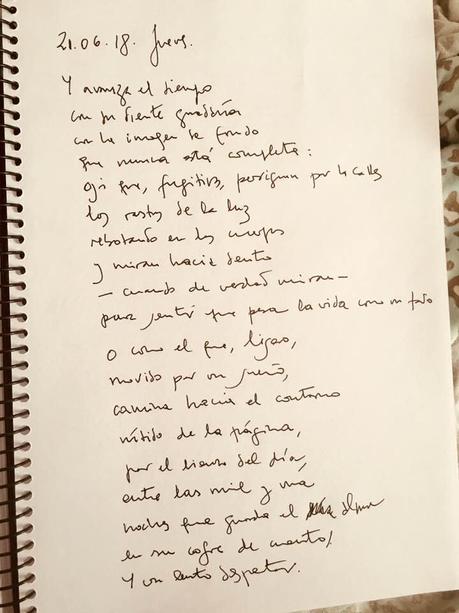 21.06.18. Jueves.
Y avanza el tiempo
con su diente guadaña
con la imagen de fondo
que nunca está completa:
ojos que, fugitivos, persiguen por la calle
los rastros de la luz
rebotando en los cuerpos
y miran hacia dentro
— cuando de verdad miran —
para sentir que pesa la vida como un fardo
o como el que, ligero,
movido por un sueño,
camina hacia el contorno
nítido de la página,
por el lienzo del día,
entre las mil y una
noches que guarda el
en su cofre de cuentos.
Y un lento despertar.